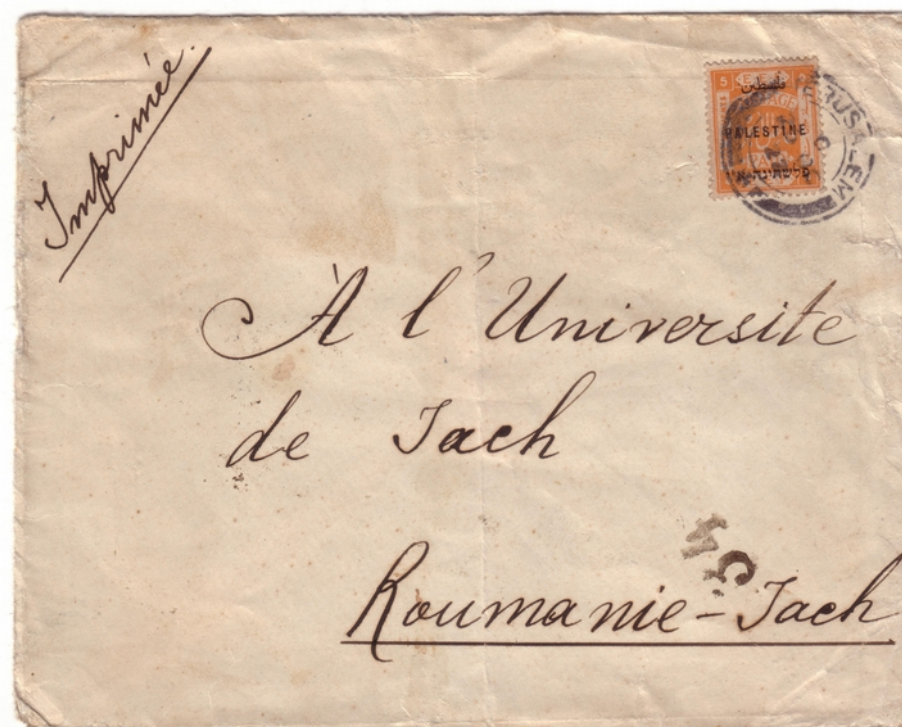 Imprimée.
5 E.E.F.
فلسطين
POSTAGE
PALESTINE
PAID
פלשתינה א״י
JERUSALEM
À l'Université
de Jach
Roumanie - Jach